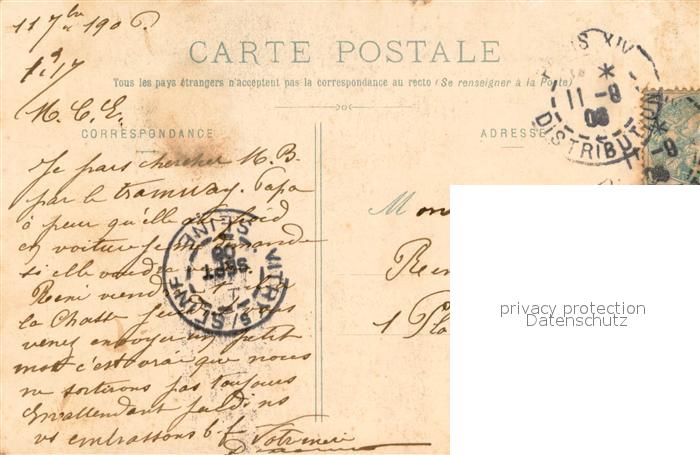 11 7bre 1906
CARTE POSTALE
Tous les pays étrangers n'acceptent pas la correspondance au recto (Se renseigner à la Poste)
M. C. E.
CORRESPONDANCE
ADRESSE
Je pars chercher M. B.
par le tramway. Papa
a peur qu'elle ait froid
en voiture je me demande
si elle voudra
René viend
la Chatte
venez envoyer un petit
mot c'est vrai que nous
ne sortirons pas toujours
En attendant
vs embrassons b. f. Votre
Mon
Ren
1 Pla
PARIS XIV
11-9
06
DISTRIBUTION
VITRY S/ SEINE
SEPT
06
SEINE
privacy protection
Datenschutz